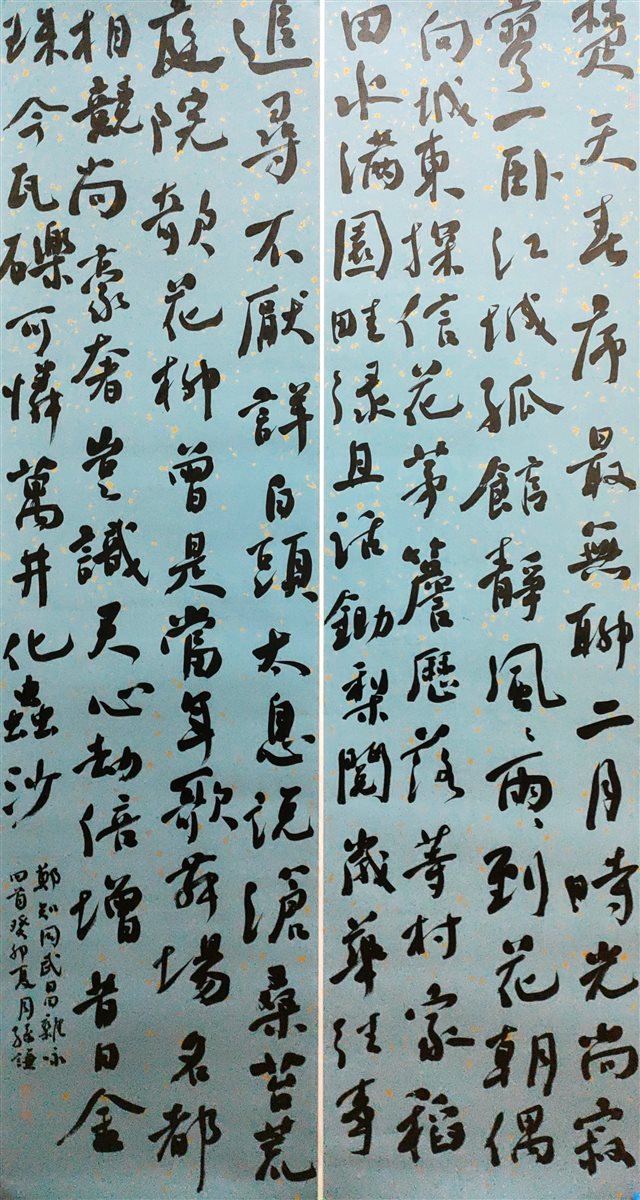 楚天春序最無聊二月時光尚寂
寥一卧江城孤館靜風〻雨〻到花朝偶
向城東探信花茅簷歷落等村家稻
田水滿園畦綠且話鋤犁閱歲華往事
追尋不厭詳白頭太息說滄桑苔荒
庭院欹花柳曾是當年歌舞場名都
相競尚豪奢豈識天心劫倍增昔日金
珠今瓦礫可憐萬井化蟲沙
鄭知同武昌雜咏
四首癸卯夏月孫